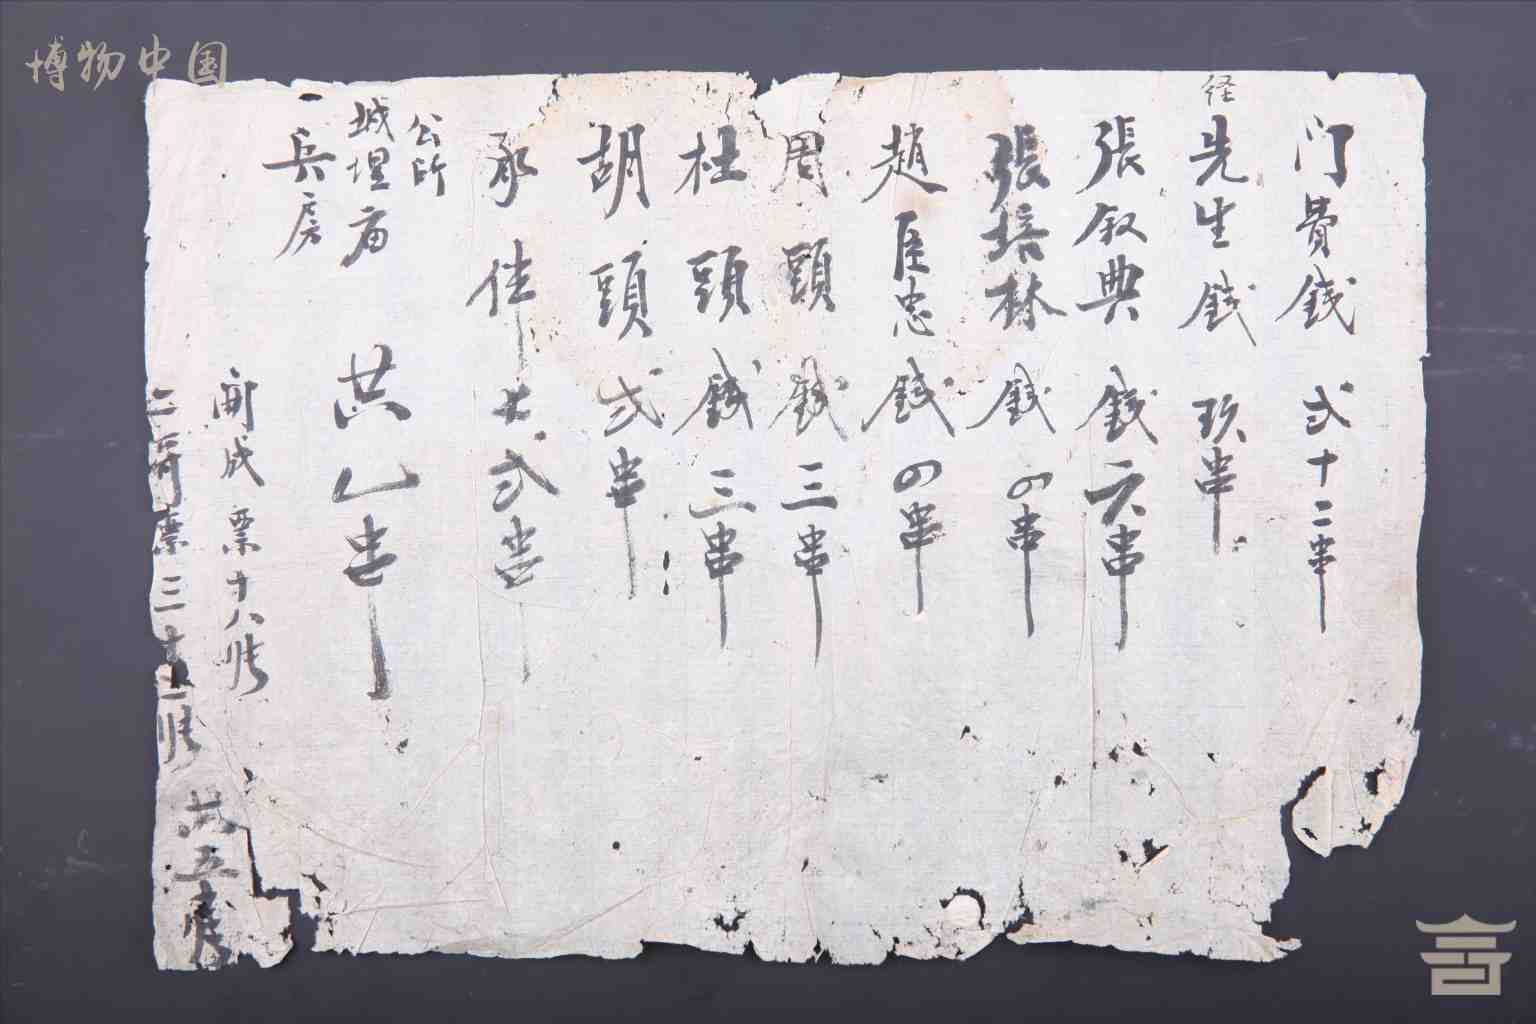 博物中国
门費錢 弍十二串
経
先生錢 玖串
張叙典 錢六串
張培林 錢四串
趙臣忠 錢四串
周頭 錢三串
杜頭 錢三串
胡頭 弍串
承仵 弍串
公所
城埋庙
兵房
共
票十八張
票三十二張
共五